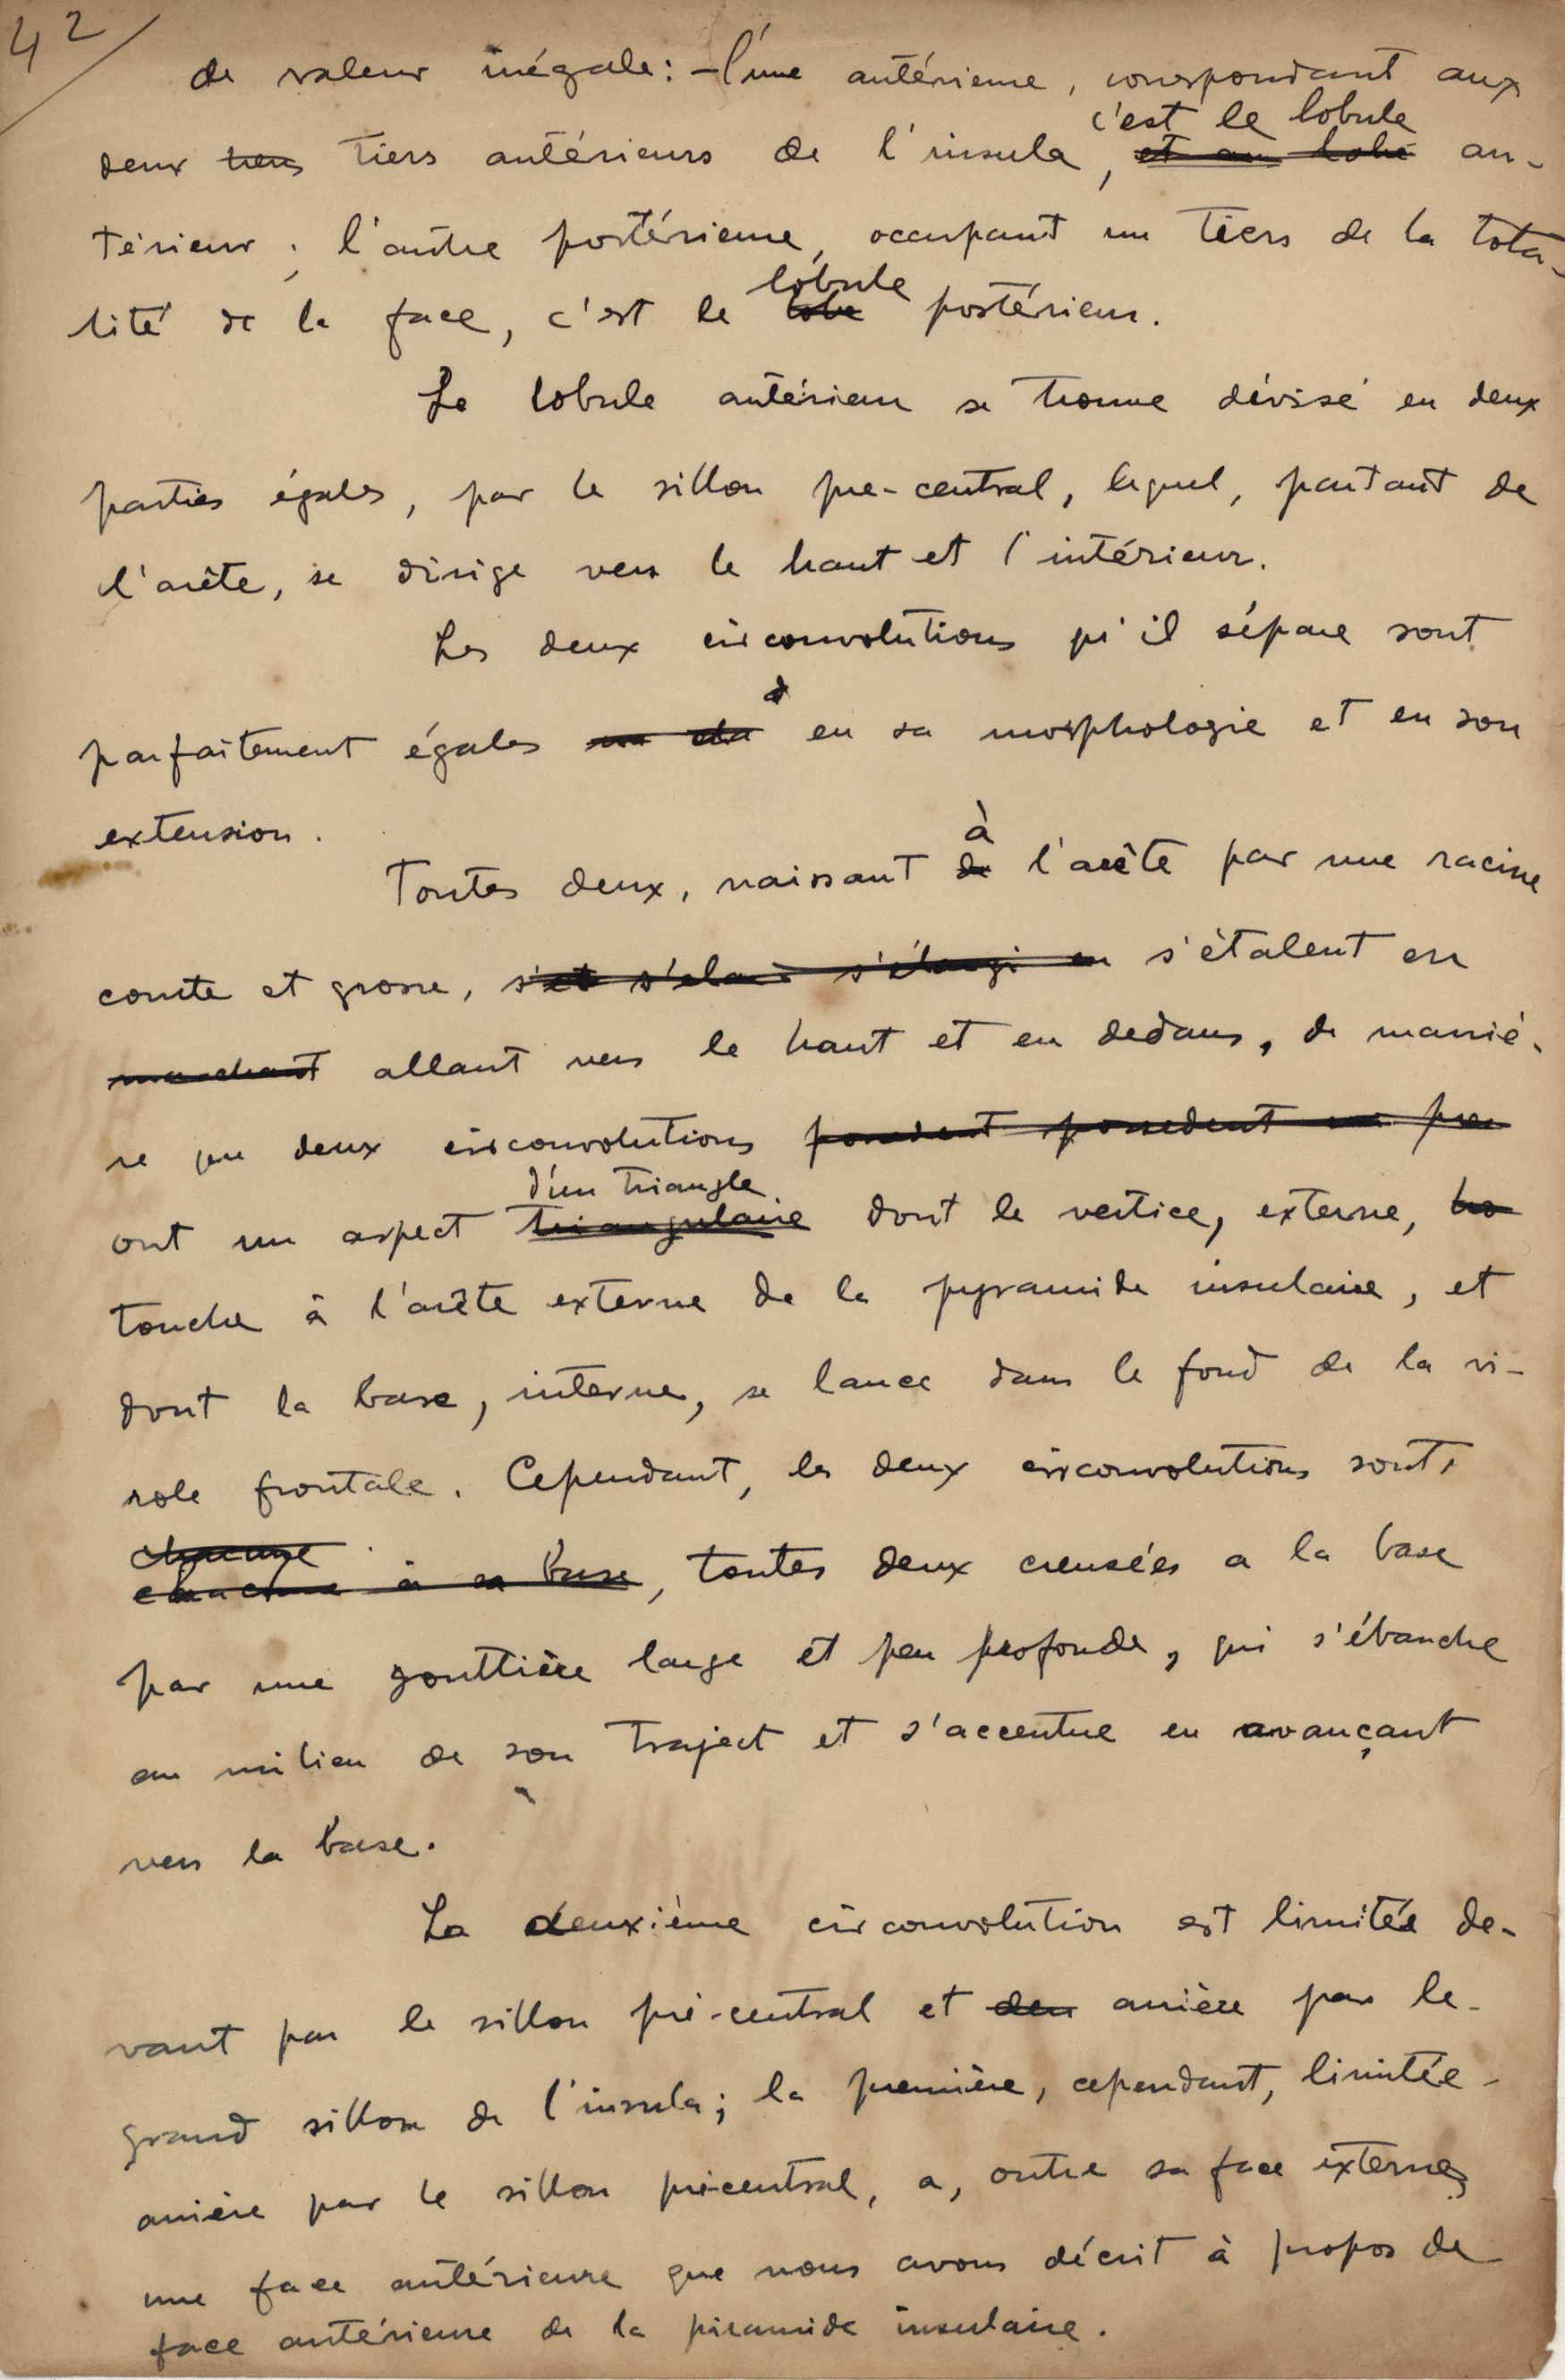 42
de valeur inégale: - l'une antérieure, correspondant aux
c'est le lobule
deux tiers tiers antérieurs de l'insula, et au lobe an-
térieur; l'autre postérieure, occupant un tiers de la tota-
lobule
lité de la face, c'est le lobe postérieur.
Le lobule antérieur se trouve dévisé en deux
parties égales, par le sillon pre-central, lequel, partant de
l'arête, se dirige vers le haut et l'intérieur.
Les deux circonvolutions qu'il sépare sont
parfaitement égales en sa morphologie et en son
extension.
à
Toutes deux, naissant de l'arête par une racine
courte et grosse, s'élargi en s'étalent en
marchant allant vers le haut et en dedans, de maniè-
re que deux circonvolutions possedent possedent une
d'un triangle
ont un aspect triangulaire dont le vertice, externe,
touche à l'arête externe de la pyramide insulaire, et
dont la base, interne, se lance dans le fond de la ri-
role frontale. Cependant, les deux circonvolutions sont,
chacune à sa base, toutes deux creusées a la base
par une gouttière large et peu profonde, qui s'ébauche
au milieu de son traject et s'accentue en avançant
vers la base.
La deuxième circonvolution est limitée de-
vant par le sillon pré-central et arrière par le
grand sillon de l'insula; la première, cependant, limitée
arrière par le sillon pré-central, a, outre sa face externe,
une face antérieure que nous avons décrit à propos de
face antérieure de la piramide insulaire.